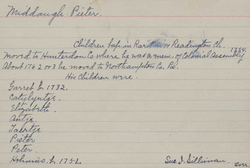 Middaugh Pieter.
Children bap. in Raritan or Readington Ch.
moved to Hunterdon Co where he was a mem. of Colonial Assembly 1754.
About 1762 or 3 he moved to Northampton Co. Pa.
His Children were.
Garret b. 1732.
Catelyntje.
Elizabeth.
Antje.
Pieter
Peter.
b. 1752
Sue J. Silliman.